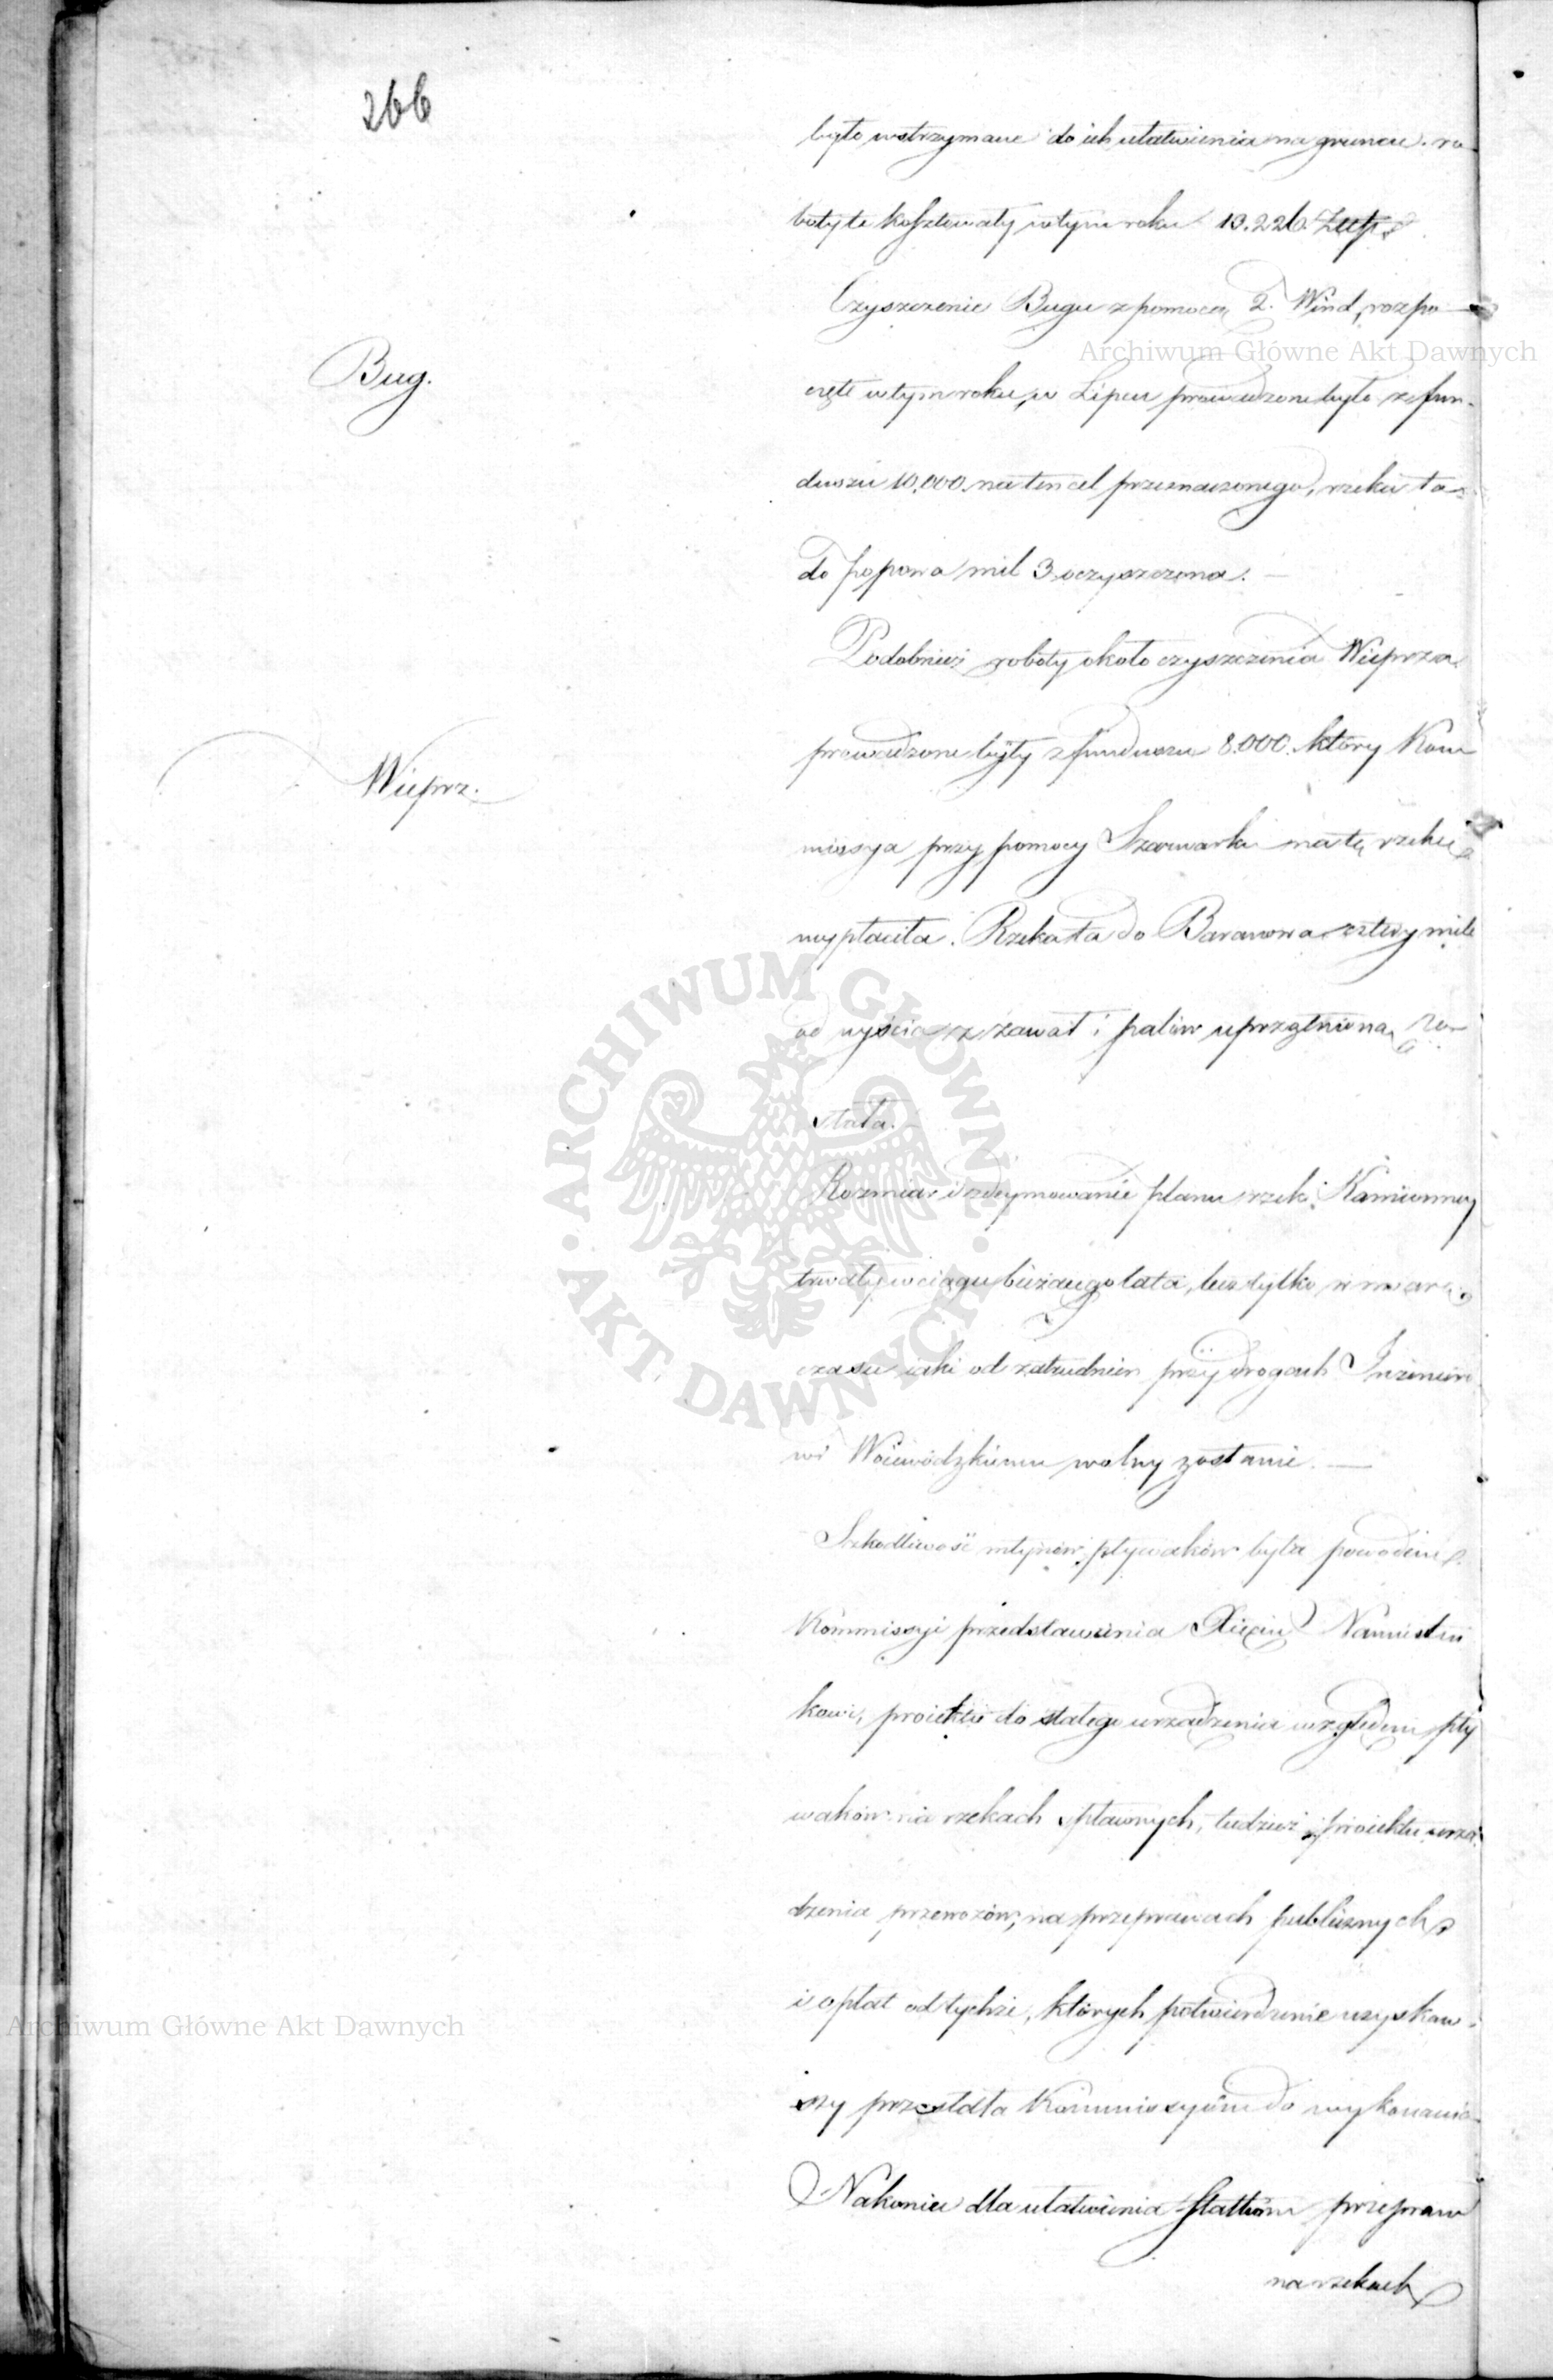 266
było wstrzymane do ich ułatwienia na gruncie. ro
boty te kosztowały w tym roku 13.226.
Czyszczenie Bugu z pomocą 2. Wind, rozpo
Archiwum Główne Akt Dawnych
Bug.
częte w tym roku, w Lipcu prowadzone było z fun-
duszu 10,000. na ten cel przeznaczonego, rzeka ta
do Popowa mil 3 oczyszczona. —
Podobnież roboty około czyszczenia Wieprza
prowadzone były z funduszu 8.000. który Kom
Wieprz.
missya przy pomocy Szarwarku na tę rzekę
wypłaciła. Rzeka ta do Baranowa cztery mile
od uyścia z zawał i palów uprzątniona zo
stała. —
Rozmiar i zdeymowanie planu rzeki Kamienney
trwały w ciągu bieżącego lata, lecz tylko w miarę
czasu iaki od zatrudnień przy drogach Inżeniero
wi Woiewódzkiemu wolny zostanie. —
Szkodliwość młynów pływaków była powodem
Kommissyi przedstawienia Xięciu Namiestni
kowi, proiektu do stałego urządzenia względem pły
waków na rzekach spławnych, tudzież proiektu urzą
dzenia przewozów, na przeprawach publicznych
i opłat od tychże, których potwierdzenie uzyskaw-
Archiwum Główne Akt Dawnych
szy przesłała Kommissyom do wykonania
Nakoniec dla ułatwienia Statkom przepraw
na rzekach
ARCHIWUM GŁÓWNE · AKT DAWNYCH ·